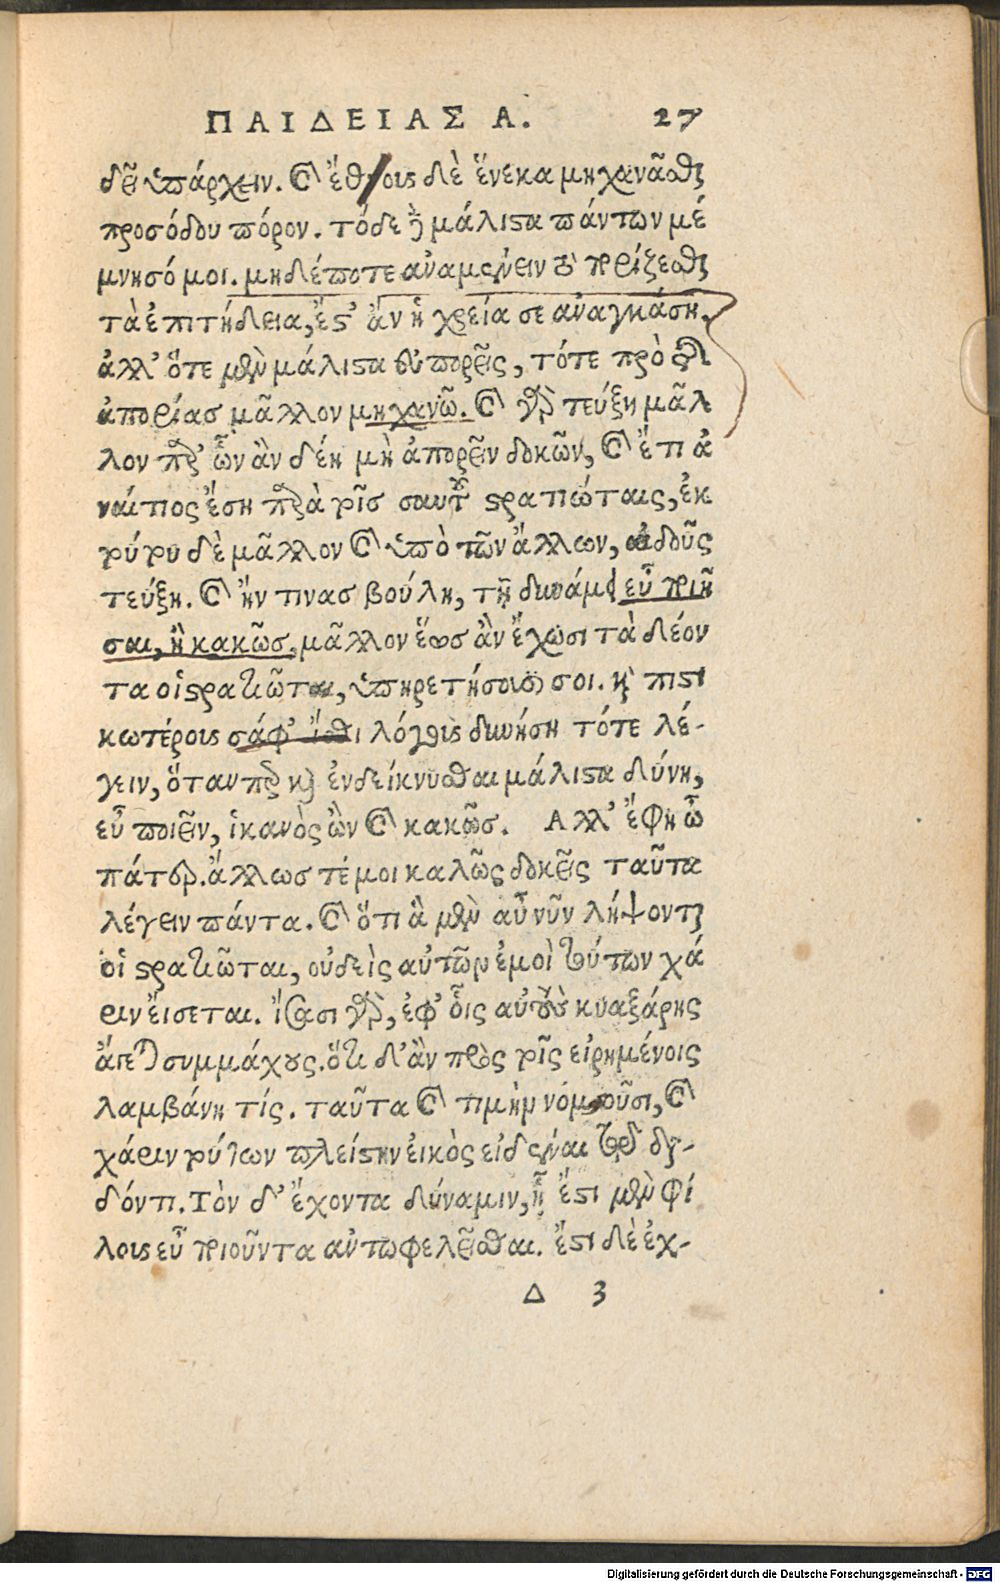 ΠΑΙΔΕΙΑΣ Α. 27
δεῖ ὑπάρχειν. καὶ ἔθους δὲ ἕνεκα μηχανᾶσθαι
προσόδου πόρον. τόδε δὲ μάλιστα πάντων μέ
μνησό μοι. μηδέποτε ἀναμένειν τὸ πορίζεσθαι
τὰ ἐπιτήδεια, ἔστ' ἂν ἡ χρεία σε ἀναγκάση.
ἀλλ' ὅτε μὲν μάλιστα εὐπορεῖς, τότε πρὸ τῆς
ἀπορίας μᾶλλον μηχανῶ. καὶ γὰρ τεύξη μᾶλ
λον παρ' ὧν ἂν δέη μὴ ἀπορεῖν δοκῶν, καὶ ἔτι ἀ
ναίτιος ἔση παρὰ τοῖς σαυτοῦ στρατιώταις, ἐκ
τούτου δὲ μᾶλλον καὶ ὑπὸ τῶν ἄλλων, αἰδοῦς
τεύξη. καὶ ἤν τινας βούλη, τῇ δυνάμει εὖ ποιῆ
σαι, ἢ κακῶς, μᾶλλον ἕως ἂν ἔχωσι τὰ δέον
τα οἱ στρατιῶται, ὑπηρετήσουσί σοι. καὶ πιστι
κωτέροις σάφ' ἴσθι λόγοις δυνήση τότε λέ-
γειν, ὅταν περ καὶ ἐνδείκνυσθαι μάλιστα δύνη,
εὖ ποιεῖν, ἱκανὸς ὢν καὶ κακῶς. Αλλ' ἔφη ὦ
πάτερ. ἄλλως τέ μοι καλῶς δοκεῖς ταῦτα
λέγειν πάντα. καὶ ὅτι ἃ μὲν αὖ νῦν λήψονται
οἱ στρατιῶται, οὐδεὶς αὐτῶν ἐμοὶ τούτων χά
ριν εἴσεται. ἴσασι γὰρ, ἐφ' οἷς αὐτοὺς κυαξάρης
ἄγεται συμμάχους. ὅτι δ' ἂν πρὸς τοῖς εἰρημένοις
λαμβάνη τίς. ταῦτα καὶ τιμὴν νομιοῦσι, καὶ
χάριν τούτων πλείστην εἰκὸς εἰδέναι τῷ δι-
δόντι. Τὸν δ' ἔχοντα δύναμιν, ᾗ ἔστι μὲν φί
λους εὖ ποιοῦντα ἀντωφελεῖσθαι. ἔστι δὲ ἐχ-
Δ 3
Digitalisierung gefördert durch die Deutsche Forschungsgemeinschaft - DFG